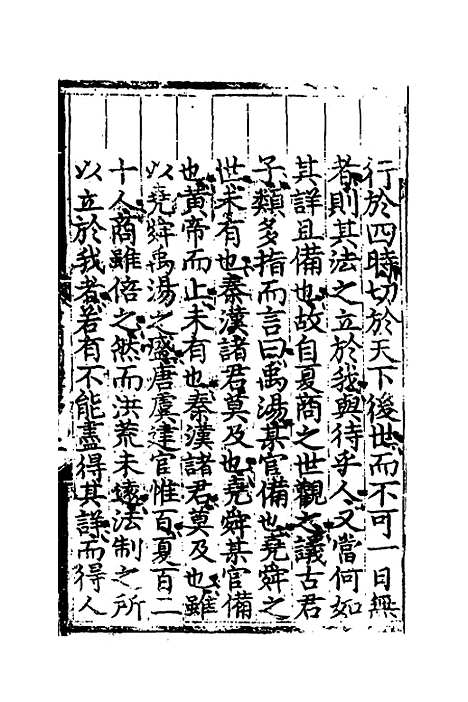 行於四時切於天下後世而不可一日無
者則其法之立於我與待乎人又當何如
其詳且備也故自夏商之世觀之議古君
子類多指而言曰禹湯某官備也堯舜之
世未有也秦漢諸君莫及也堯舜某官備
也黃帝而上未有也秦漢諸君莫及也雖
以堯舜禹湯之盛唐虞建官惟百夏百二
十人商雖倍之然而洪荒未遠法制之所
以立於我者若有不能盡得其詳而得人